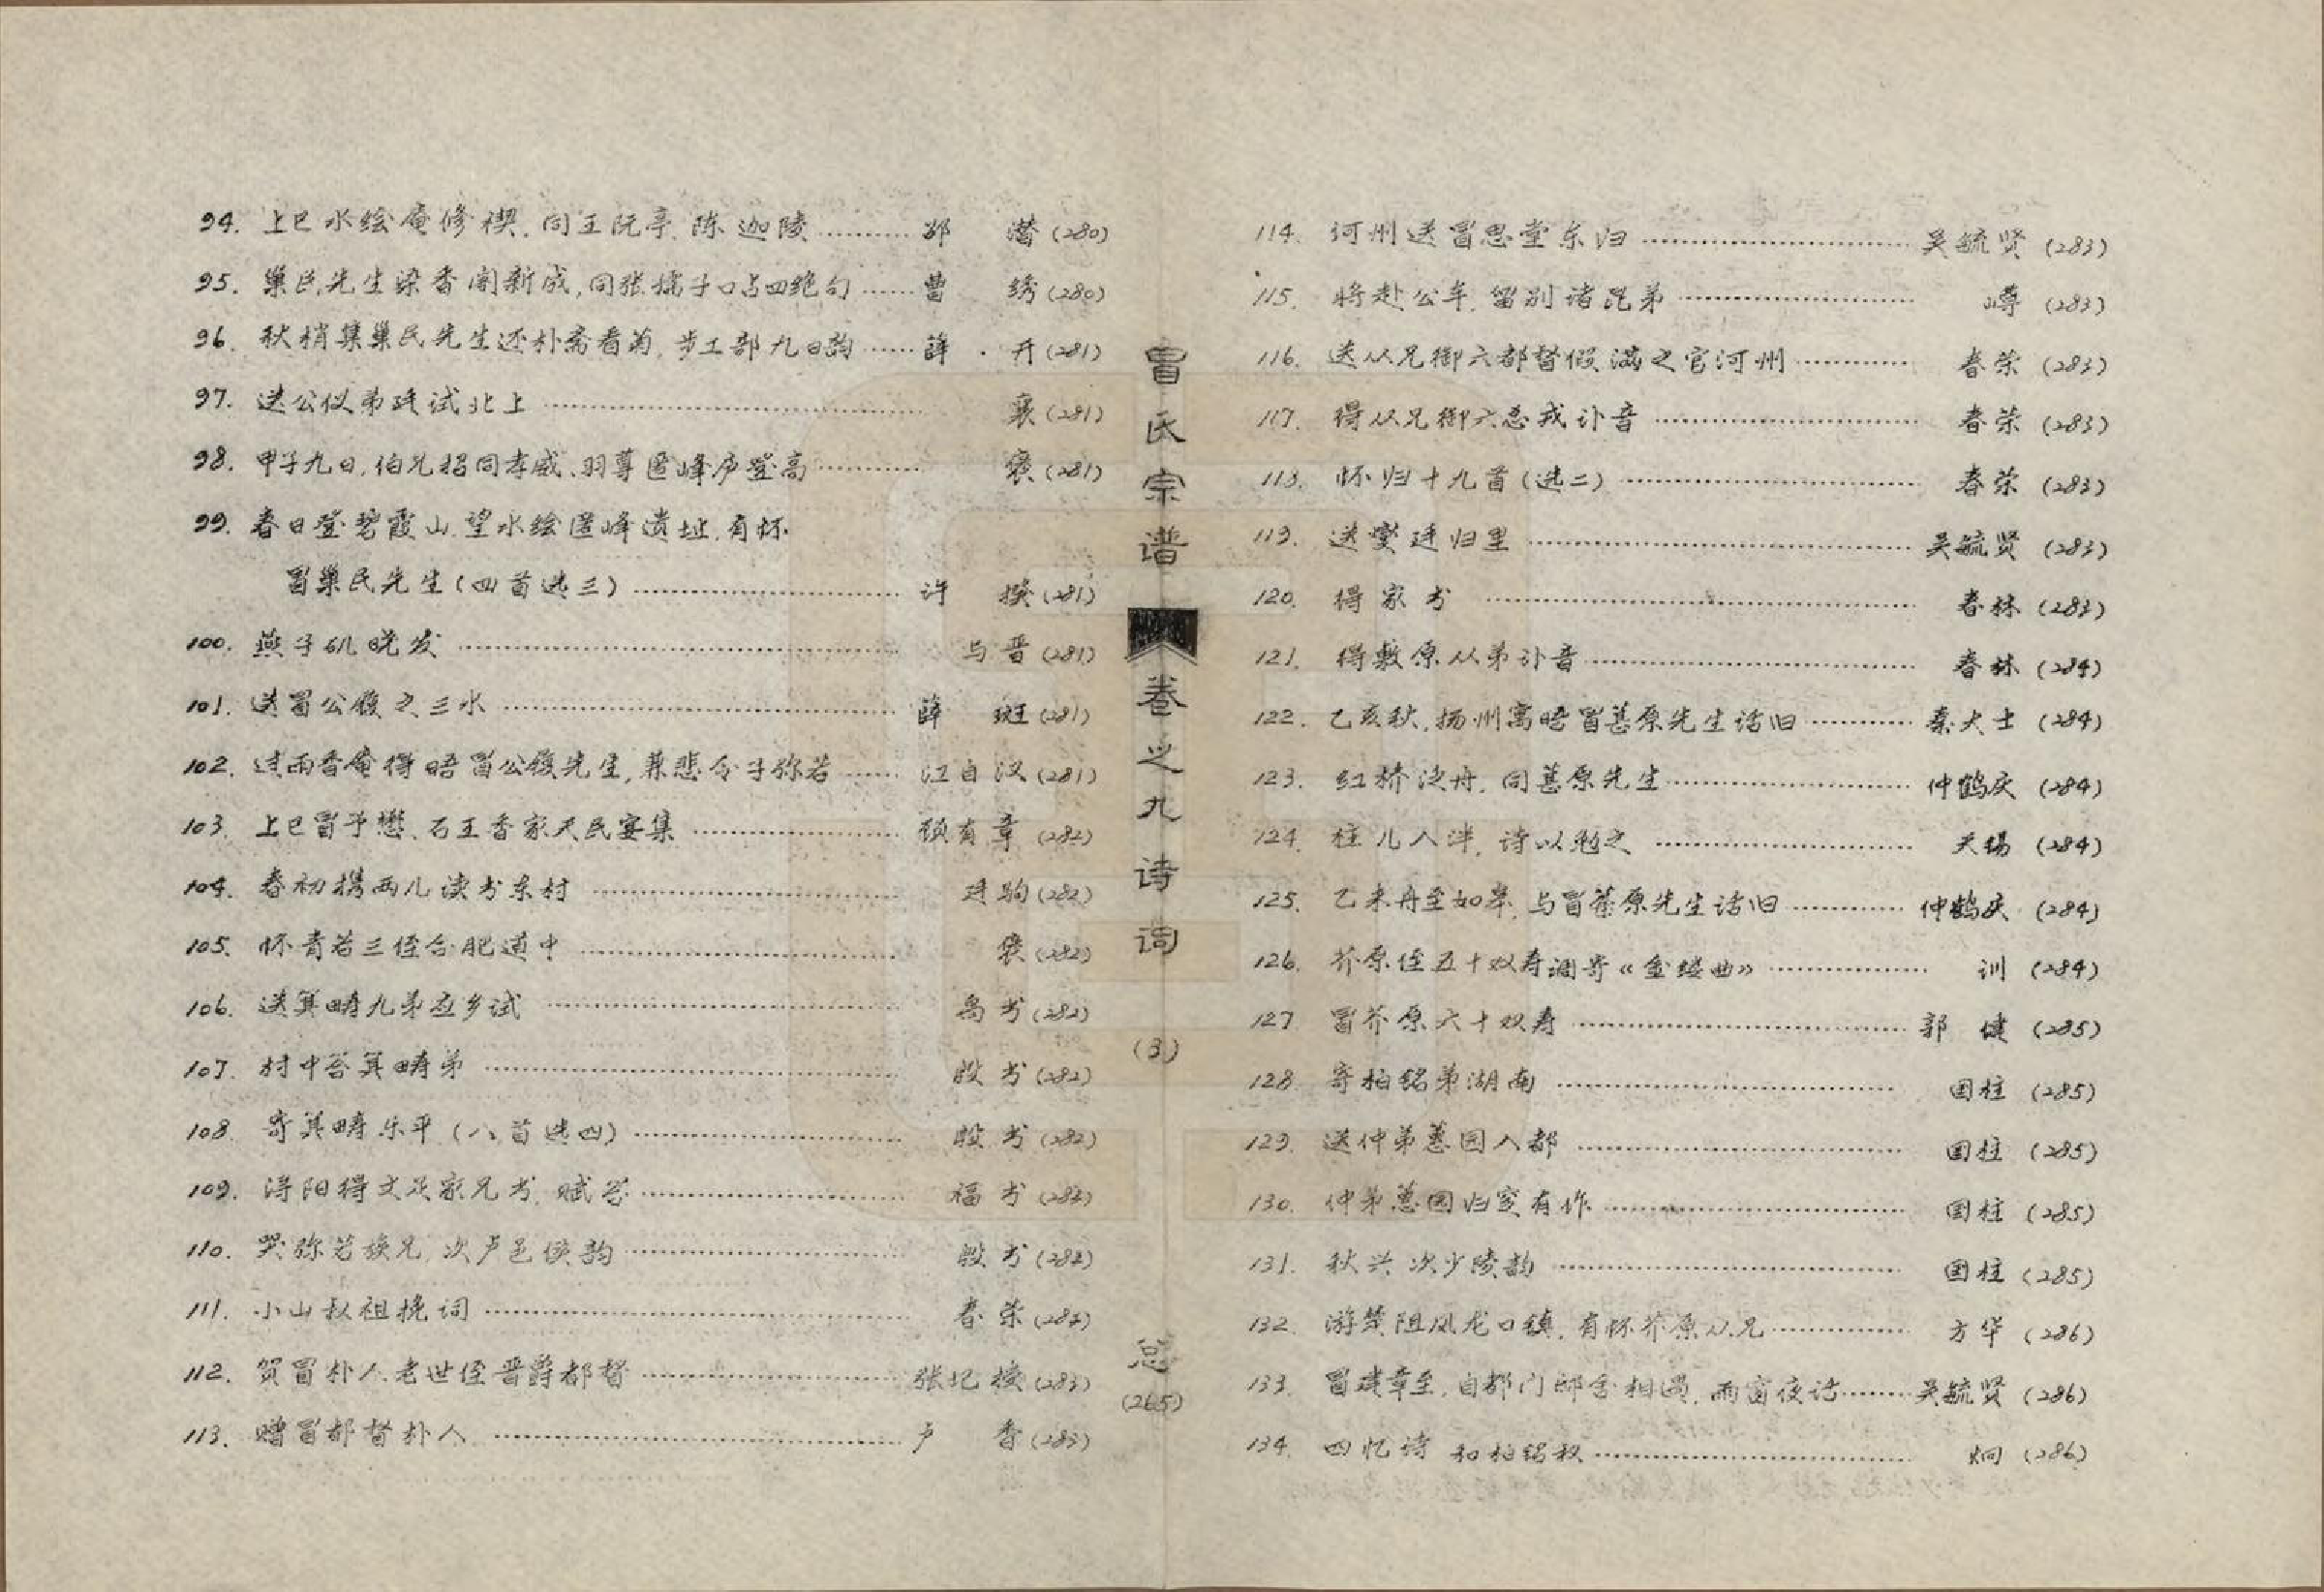 94. 上巳水绘庵修禊,同王阮亭、陈迦陵………邵 潜(280)
95. 巢民先生染香阁新成,同张孺子口占四绝句……曹 绣(280)
96. 秋梢集巢民先生还朴斋看菊,步工部九日韵……薛 开(281)
97. 送公仪弟廷试北上………褒(281)
98. 甲子九日,伯兄招同孝威、羽尊匿峰庐登高………褒(281)
99. 春日登碧霞山,望水绘匿峰遗址,有怀
冒巢民先生(四首选三)………许 揆(281)
100. 燕子矶晚发………与晋(281)
101. 送冒公履之三水………薛 斑(281)
102. 过雨香庵得晤冒公履先生,兼悲令子弥若……江自汉(281)
103. 上巳冒予懋、石王香家天民宴集………顾有章(282)
104. 春初携两儿读书东村………廷驹(282)
105. 怀青若三侄合肥道中………褒(282)
106. 送箕畴九弟应乡试………禹书(282)
107. 村中答箕畴弟………殷书(282)
108. 寄箕畴乐平(八首选四)………殷书(282)
109. 浔阳得文足家兄书,赋答………福书(282)
110. 哭弥若族兄,次卢邑侯韵………殷书(282)
111. 小山叔祖挽词………春荣(282)
112. 贺冒朴人老世侄晋爵都督………张圯授(283)
113. 赠冒都督朴人………卢 香(283)
冒氏宗谱
卷之九诗词
(3)
总
(265)
114. 河州送冒思堂东归………吴毓贤(283)
115. 将赴公车,留别诸昆弟………嶟(283)
116. 送从兄御六都督假满之官河州………春荣(283)
117. 得从兄御六总戎讣音………春荣(283)
118. 怀归十九首(选二)………春荣(283)
119. 送燮廷归里………吴毓贤(283)
120. 得家书………春林(283)
121. 得敷原从弟讣音………春林(284)
122. 乙亥秋,扬州寓晤冒葚原先生话旧………秦大士(284)
123. 红桥泛舟,同葚原先生………仲鹤庆(284)
124. 柱儿入泮,诗以勉之………天锡(284)
125. 乙未舟至如皋,与冒葚原先生话旧………仲鹤庆(284)
126. 芥原侄五十双寿调寄《金缕曲》………训(284)
127 冒芥原六十双寿………郭 健(285)
128. 寄柏铭弟湖南………国柱(285)
129. 送仲弟蕙园入都………国柱(285)
130. 仲弟蕙园归家有作………国柱(285)
131. 秋兴 次少陵韵………国柱(285)
132. 游楚阻风龙口镇,有怀芥原从兄………方华(286)
133. 冒建章至,自都门邸舍相遇,雨窗夜话………吴毓贤(286)
134. 四忆诗 和柏铭叔………炯(286)